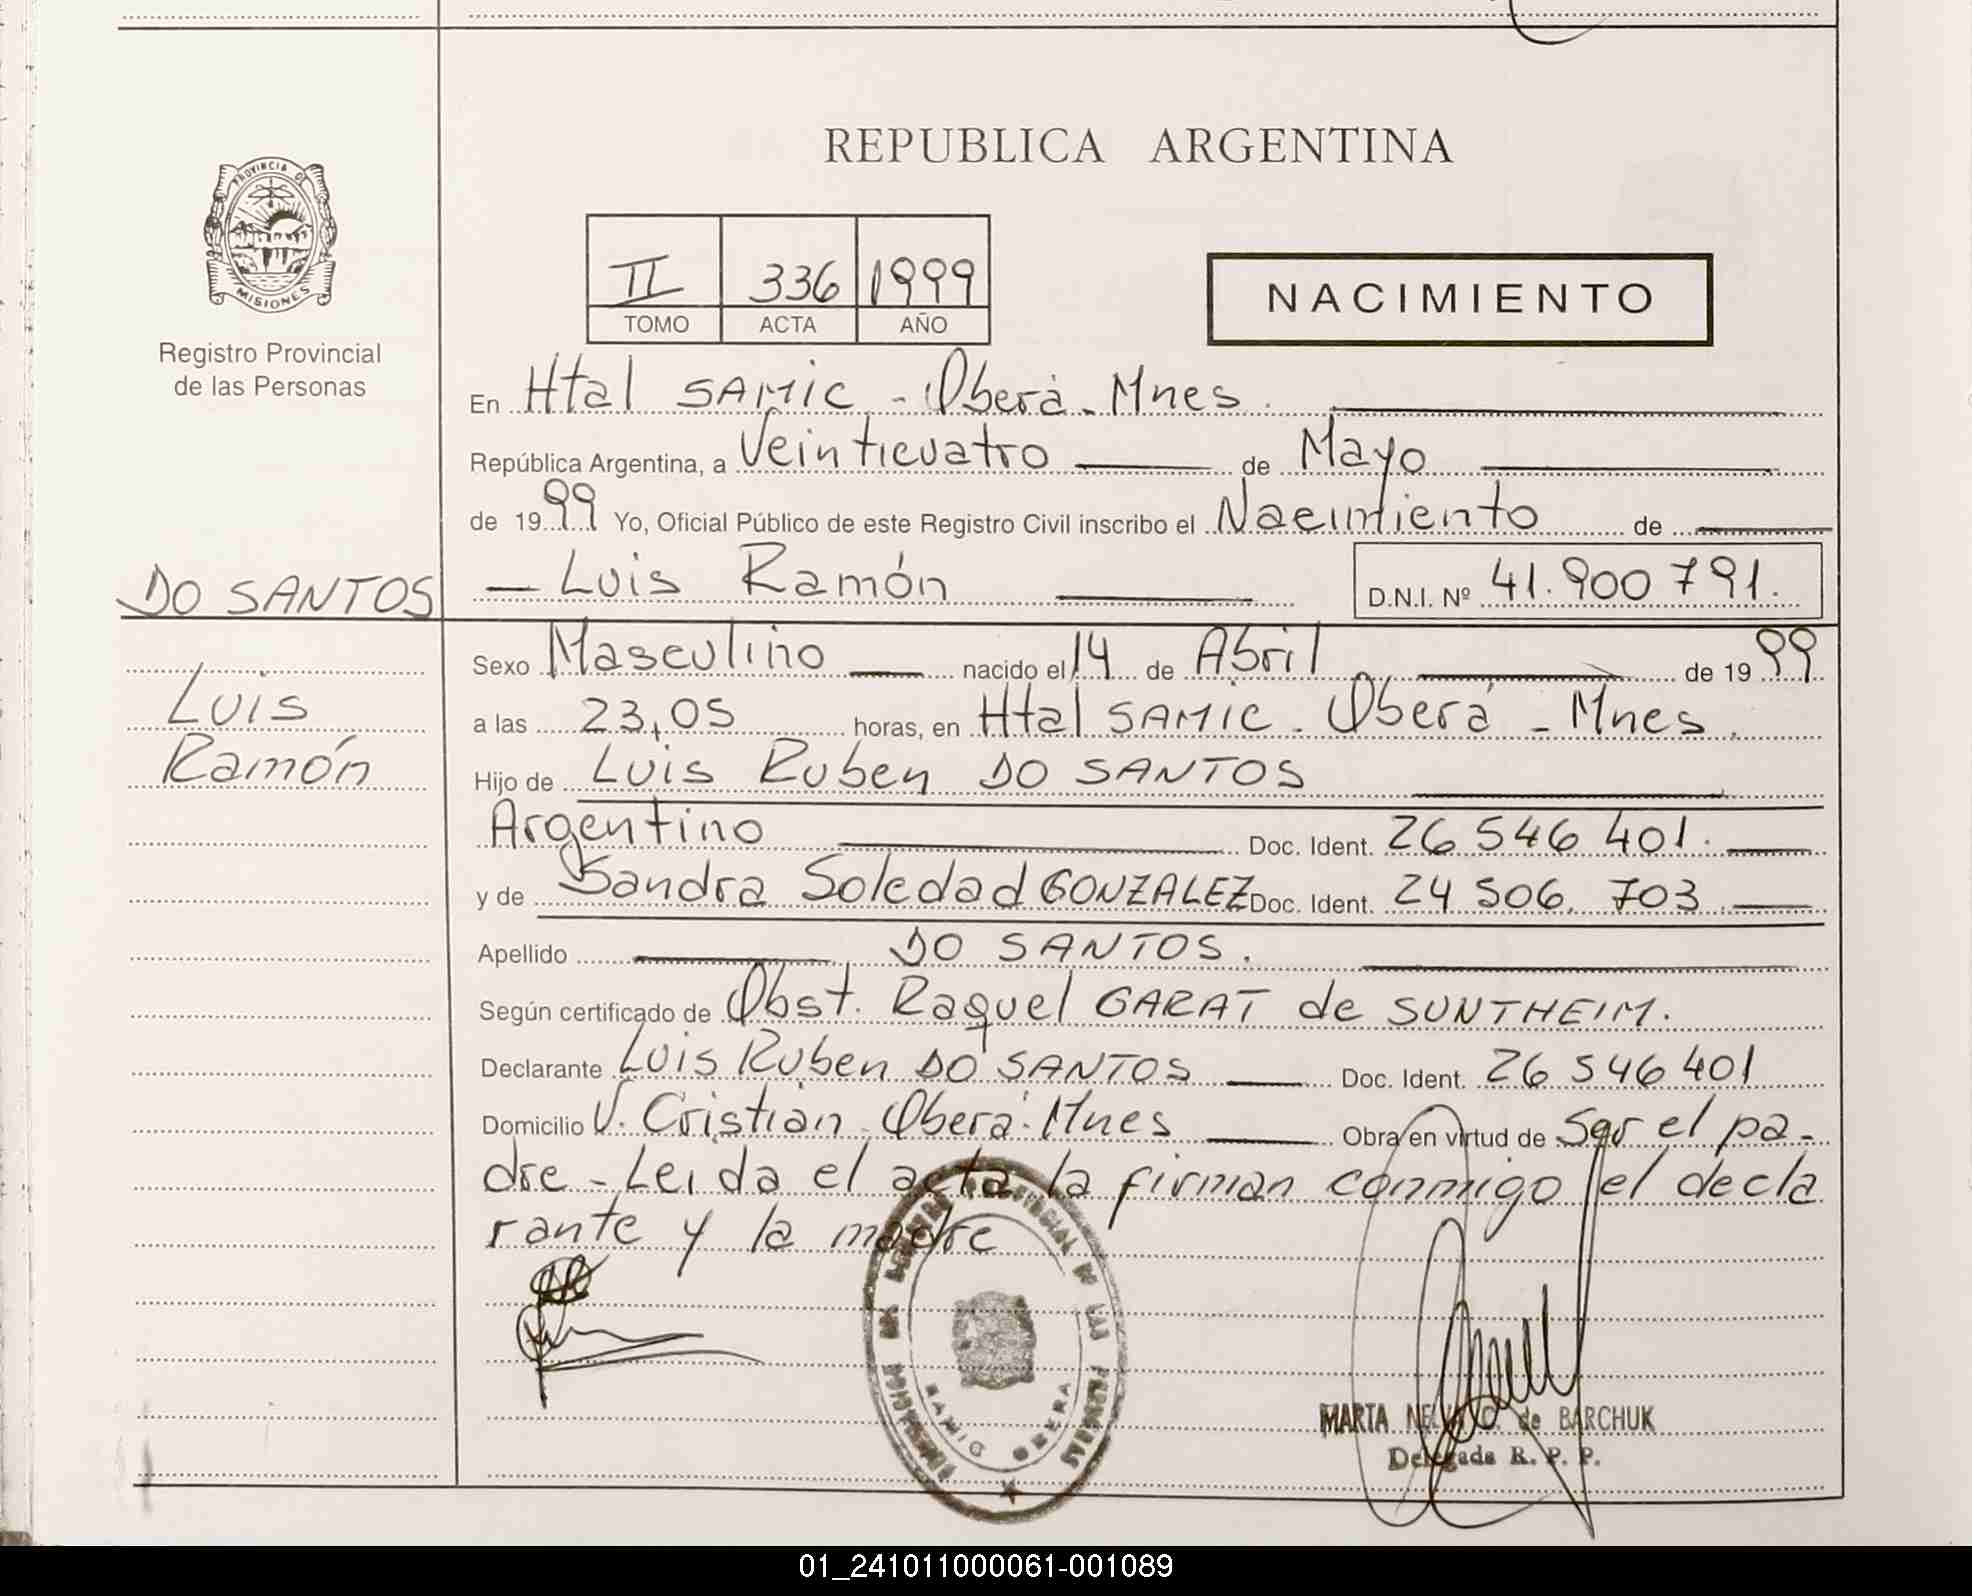 REPUBLICA ARGENTINA
PROVINCIA DE
MISIONES
Registro Provincial
de las Personas
II 336 1999
TOMO ACTA AÑO
NACIMIENTO
En Htal SAMIC - Oberá - Mnes.
República Argentina, a Veinticuatro de Mayo
de 1999 Yo, Oficial Público de este Registro Civil inscribo el Nacimiento de
DO SANTOS
Luis
Ramón
Luis Ramón D.N.I. Nº 41.900 791.
Sexo Masculino nacido el 14 de Abril de 1999
a las 23,05 horas, en Htal SAMIC - Oberá - Mnes.
Hijo de Luis Ruben DO SANTOS
Argentino Doc. Ident. 26 546 401.
y de Sandra Soledad GONZALEZ Doc. Ident. 24 506. 703
Apellido DO SANTOS.
Según certificado de Obst. Raquel GARAT de SUNTHEIM.
Declarante Luis Ruben DO SANTOS Doc. Ident. 26 546 401
Domicilio V. Cristian. Oberá. Mnes Obra en virtud de Ser el pa-
dre - Leida el acta la firman conmigo el decla
rante y la madre
SAMIC OBERA
MARTA C. de BARCHUK
Delegada R. P. P.
01_241011000061-001089